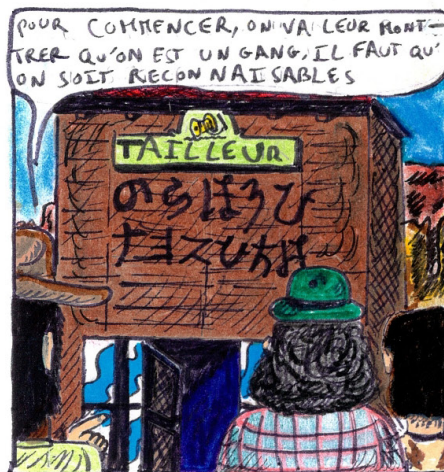 POUR COMMENCER, ON VA LEUR MONT-
TRER QU'ON EST UN GANG, IL FAUT QU'
ON SOIT RECONNAISABLES
TAILLEUR